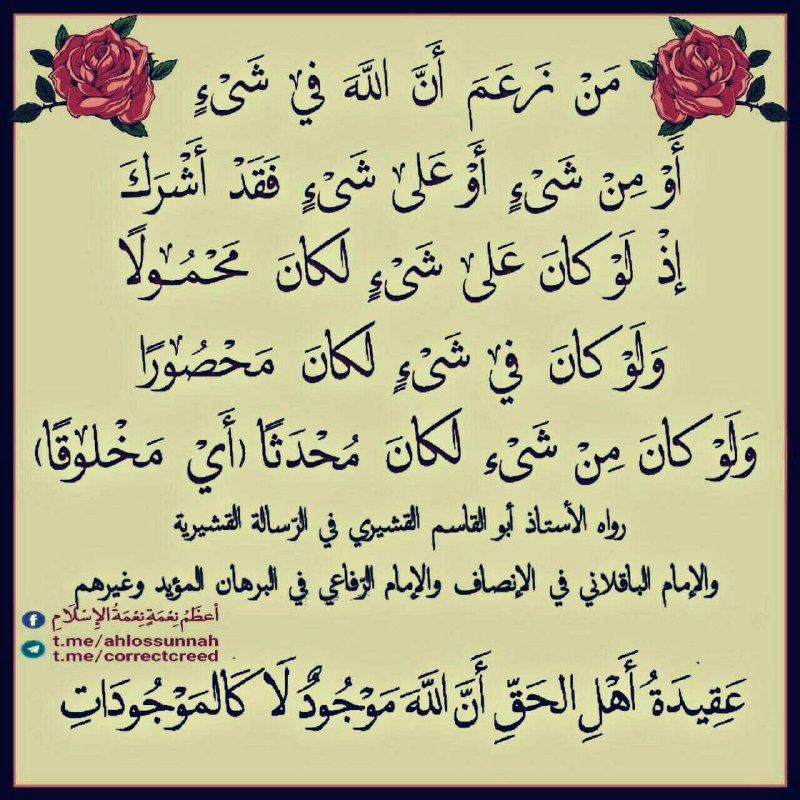 مَنْ زَعَمَ أَنَّ اللَّهَ فِي شَىْءٍ
أَوْ مِنْ شَىْءٍ أَوْ عَلَى شَىْءٍ فَقَدْ أَشْرَكَ
إِذْ لَوْ كَانَ عَلَى شَىْءٍ لَكَانَ مَحْمُولًا
وَلَوْ كَانَ فِي شَىْءٍ لَكَانَ مَحْصُورًا
وَلَوْ كَانَ مِنْ شَىْءٍ لَكَانَ مُحْدَثًا (أَيْ مَخْلُوقًا)
رواه الأستاذ أبو القاسم القشيري في الرّسالة القشيرية
والإمام الباقلاني في الإنصاف والإمام الرّفاعي في البرهان المؤيد وغيرهم
أعظَمُ نِعْمَةٍ نِعْمَةُ الإِسْلَامِ
t.me/ahlossunnah
t.me/correctcreed
عَقِيدَةُ أَهْلِ الحَقِّ أَنَّ اللَّهَ مَوْجُودٌ لَا كَالمَوْجُودَاتِ